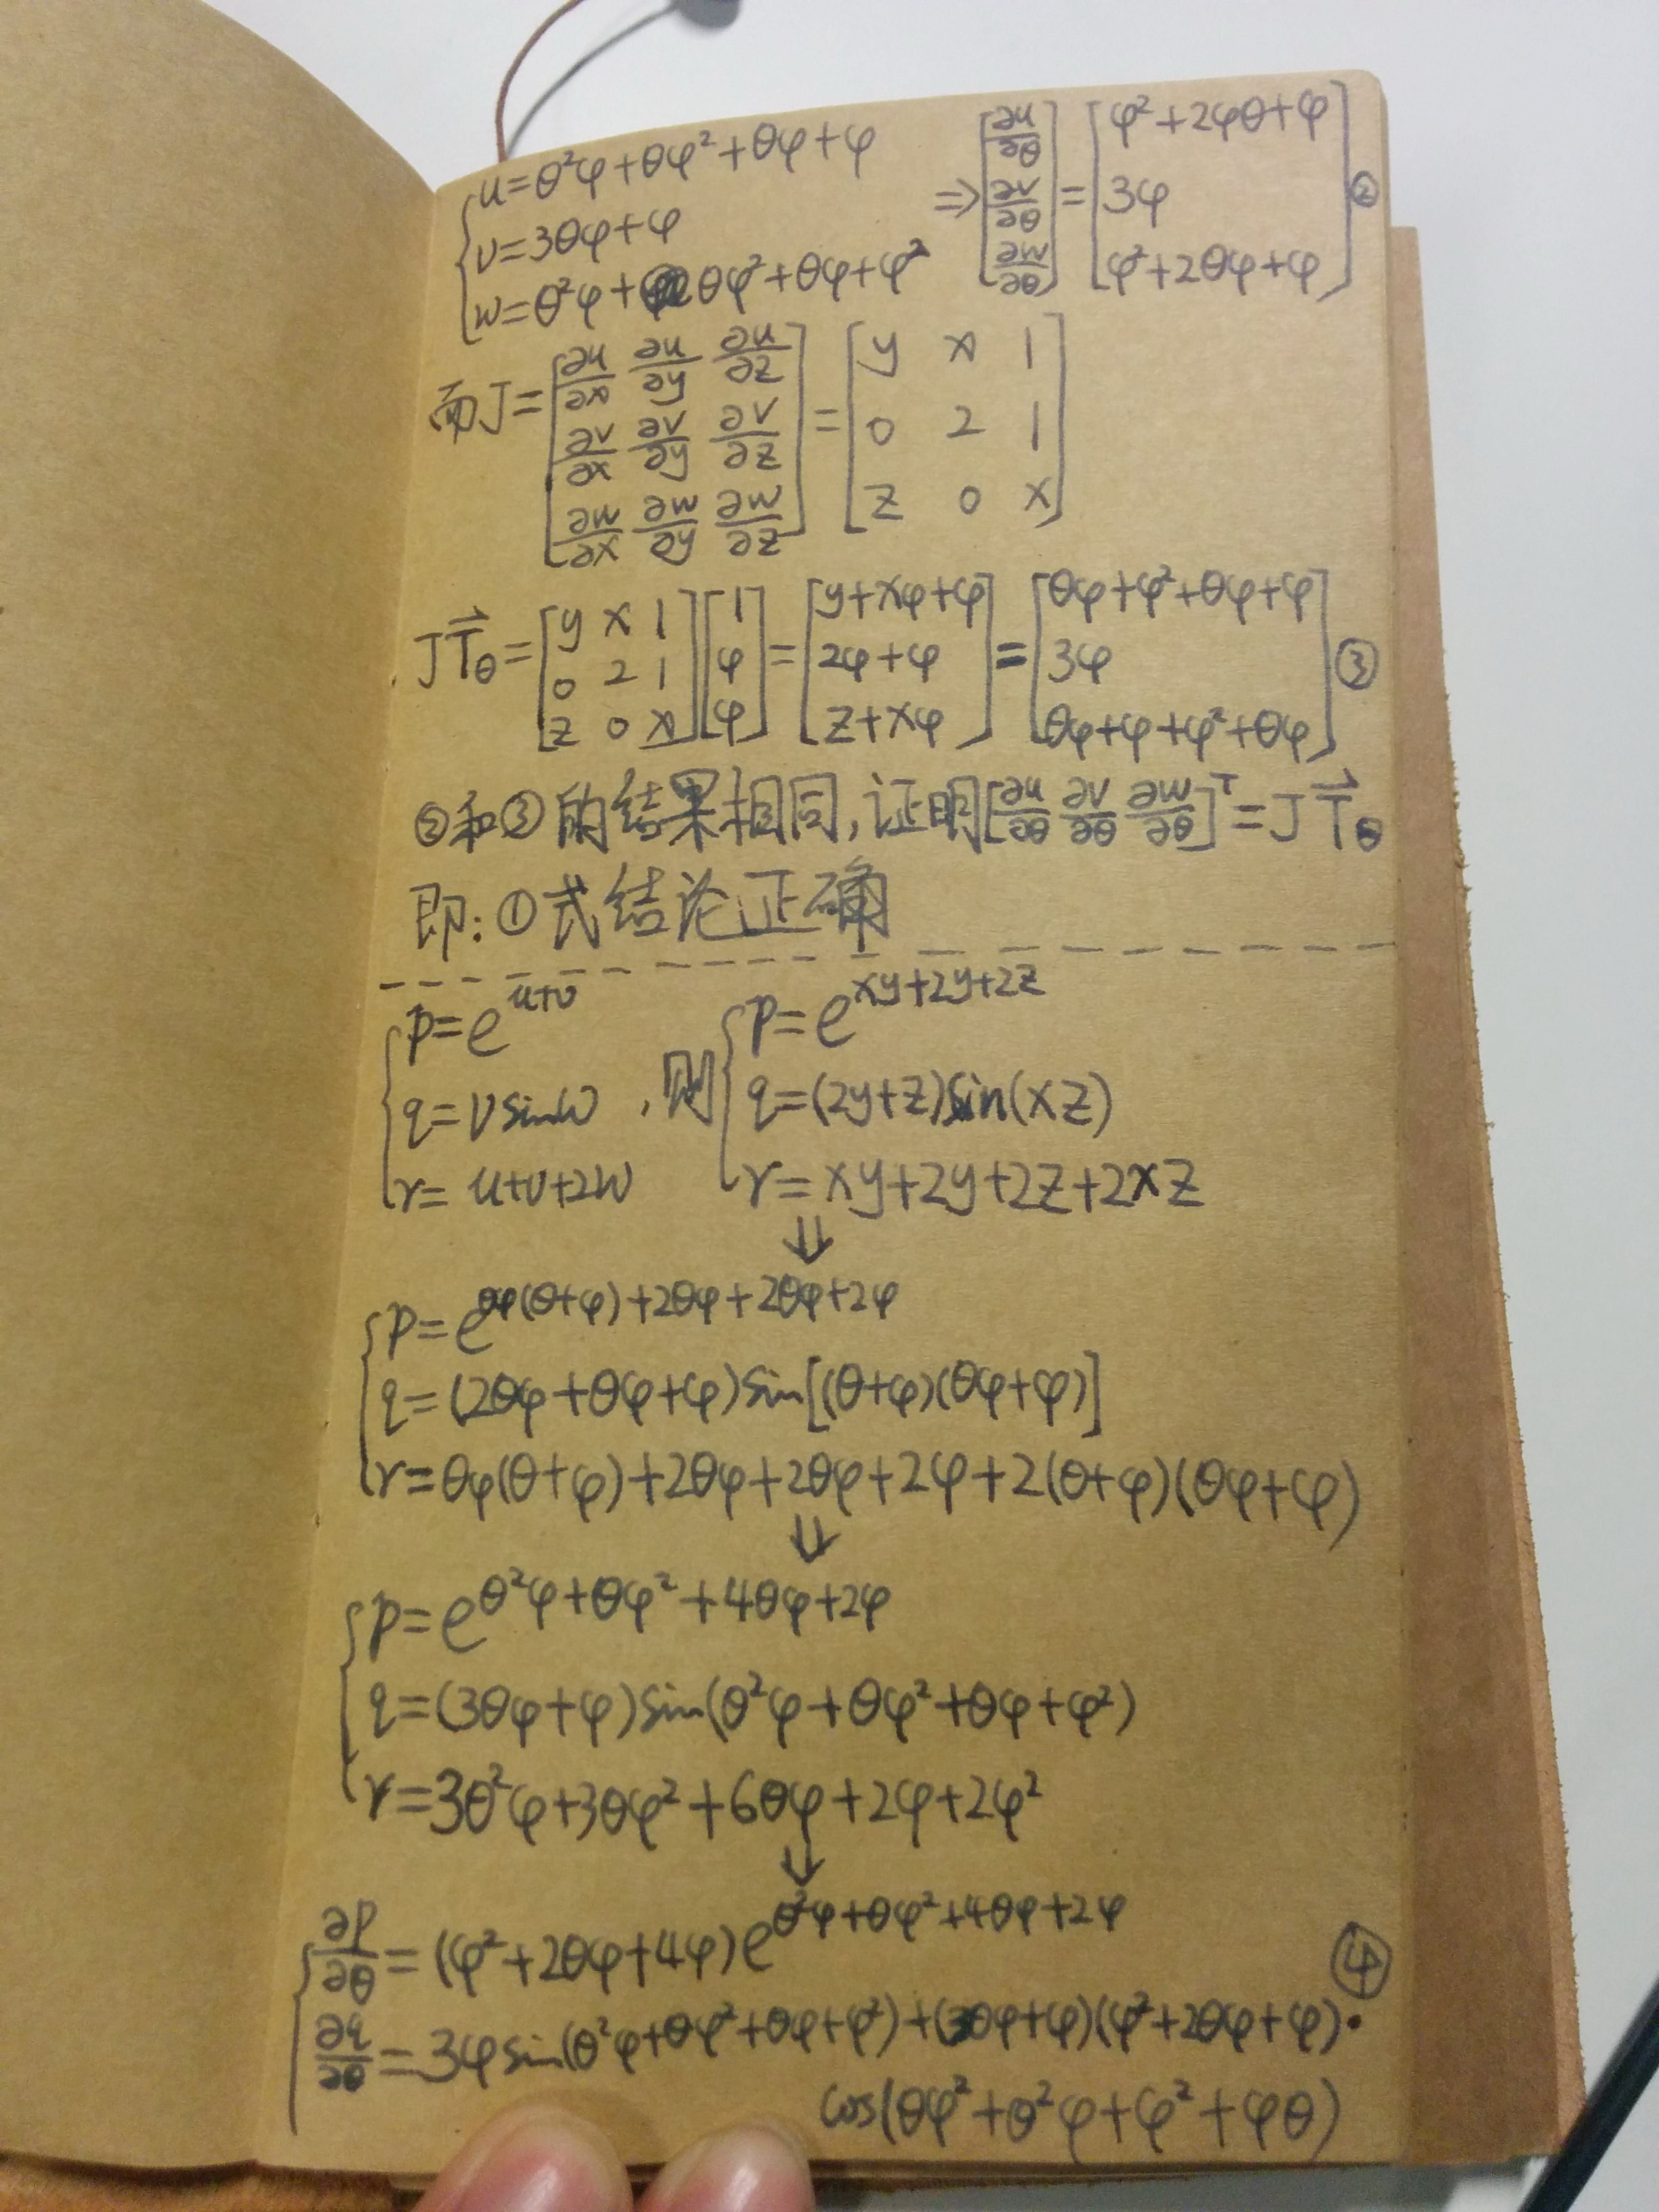 u=θ²φ+θφ²+θφ+φ
v=3θφ+φ
w=θ²φ+θφ²+θφ+φ²
⇒[∂u/∂θ ∂v/∂θ ∂w/∂θ]=[φ²+2φθ+φ 3φ φ²+2θφ+φ] ②
而J=[∂u/∂x ∂u/∂y ∂u/∂z
∂v/∂x ∂v/∂y ∂v/∂z
∂w/∂x ∂w/∂y ∂w/∂z]
=[y x 1
0 2 1
z 0 x]
JT⃗θ=[y x 1
0 2 1
z 0 x][1 φ φ]=[y+xφ+φ 2φ+φ z+xφ]=[θφ+φ²+θφ+φ 3φ θφ+φ+φ²+θφ] ③
②和③的结果相同,证明[∂u/∂θ ∂v/∂θ ∂w/∂θ]ᵀ=JT⃗θ
即:①式结论正确
p=e^(u+v)
q=v sinw
r=u+v+2w
,则
p=e^(xy+2y+2z)
q=(2y+z)sin(xz)
r=xy+2y+2z+2xz
⇓
p=e^(θφ(θ+φ)+2θφ+2θφ+2φ)
q=(2θφ+θφ+φ)sin[(θ+φ)(θφ+φ)]
r=θφ(θ+φ)+2θφ+2θφ+2φ+2(θ+φ)(θφ+φ)
⇓
p=e^(θ²φ+θφ²+4θφ+2φ)
q=(3θφ+φ)sin(θ²φ+θφ²+θφ+φ²)
r=3θ²φ+3θφ²+6θφ+2φ+2φ²
⇓
∂p/∂θ=(φ²+2θφ+4φ)e^(θ²φ+θφ²+4θφ+2φ) ④
∂q/∂θ=3φsin(θ²φ+θφ²+θφ+φ²)+(3θφ+φ)(φ²+2θφ+φ)·
cos(θφ²+θ²φ+φ²+φθ)